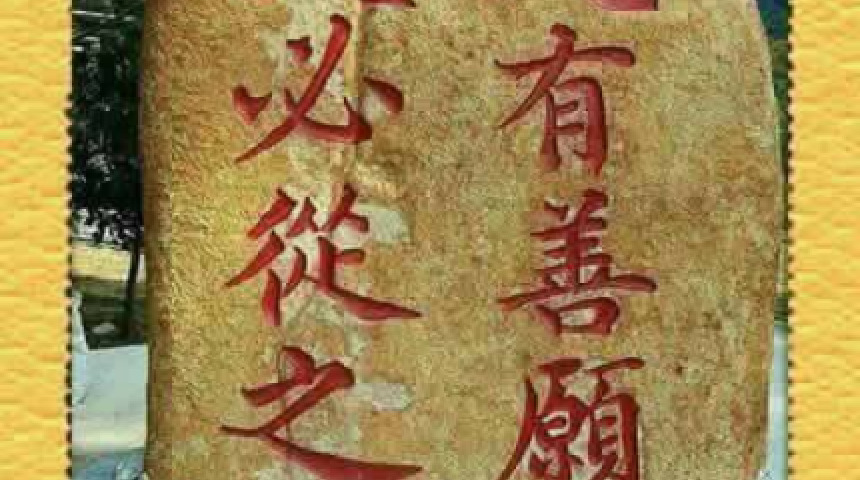 有善願
必從之